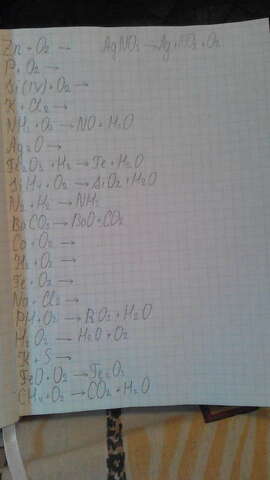 Zn + O₂ → AgNO₃ → Ag + NO₂ + O₂
P + O₂ →
Si(IV) + O₂ →
K + Cl₂ →
NH₃ + O₂ → NO + H₂O
Ag₂O →
Fe₂O₃ + H₂ → Fe + H₂O
SiH₄ + O₂ → SiO₂ + H₂O
N₂ + H₂ → NH₃
BaCO₃ → BaO + CO₂
Ca + O₂ →
H₂ + O₂ →
Fe + O₂ →
Na + Cl₂ →
PH + O₂ → + H₂O
H₂O₂ → H₂O + O₂
K + S →
FeO + O₂ → Fe₂O₃
CH₄ + O₂ → CO₂ + H₂O